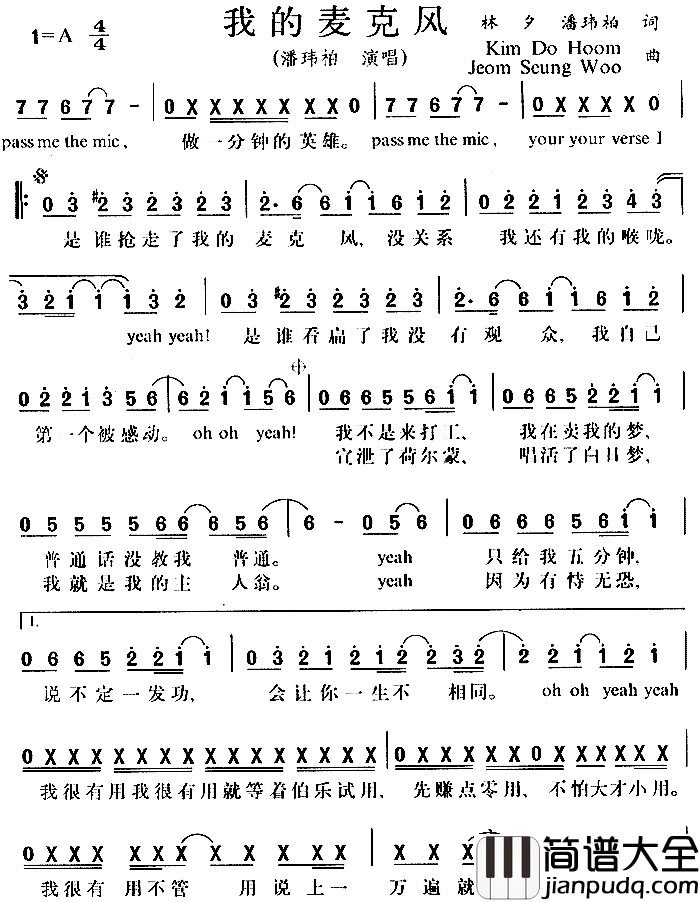 我的麦克风
林 夕 潘玮柏 词
1=A 4/4
(潘玮柏 演唱)
Kim Do Hoom
Jeom Seung Woo 曲
7 7 6 7 7 - 0 X X X X X X X 0 7 7 6 7 7 - 0 X X X X 0
pass me the mic, 做一分钟的英雄。 pass me the mic, your your verse I
0 3 #2 3 2 3 2 3 2· 6 6 1 1 6 1 2 0 2 2 1 2 3 4 3
是谁抢走了我的 麦克 风,没关系 我还有我的喉咙。
3 2 1 1 1 3 2 0 3 #2 3 2 3 2 3 2· 6 6 1 1 6 1 2
yeah yeah! 是谁看扁了我没 有观 众,我自己
0 2 2 1 3 5 6 6 2 1 1 5 6 0 6 6 5 5 6 1 1 0 6 6 5 2 2 1 1
第一个被感动。 oh oh yeah! 我不是来打工, 我在卖我的梦,
宣泄了荷尔蒙, 唱活了白日梦,
0 5 5 5 5 6 6 6 5 6 6 - 0 5 6 0 6 6 5 5 6 1 1
普通话没教我 普通。 yeah 只给我五分钟,
我就是我的主 人翁。 yeah 因为有恃无恐,
1.
0 6 6 5 2 2 1 1 0 3 2 1 2 1 2 2 3 2 2 2 2 1 1
说不定一发功, 会让你一生不 相同。 oh oh yeah yeah
0 X X X X X X X X X X X X X X X 0 X X X X X 0 X X X X X X
我很有用我很有用就等着伯乐试用, 先赚点零用, 不怕大才小用。
0 X X X X X X X X X X X X X X X
我很有 用不管 用说上一 万遍就
简谱大全
jianpudq.com